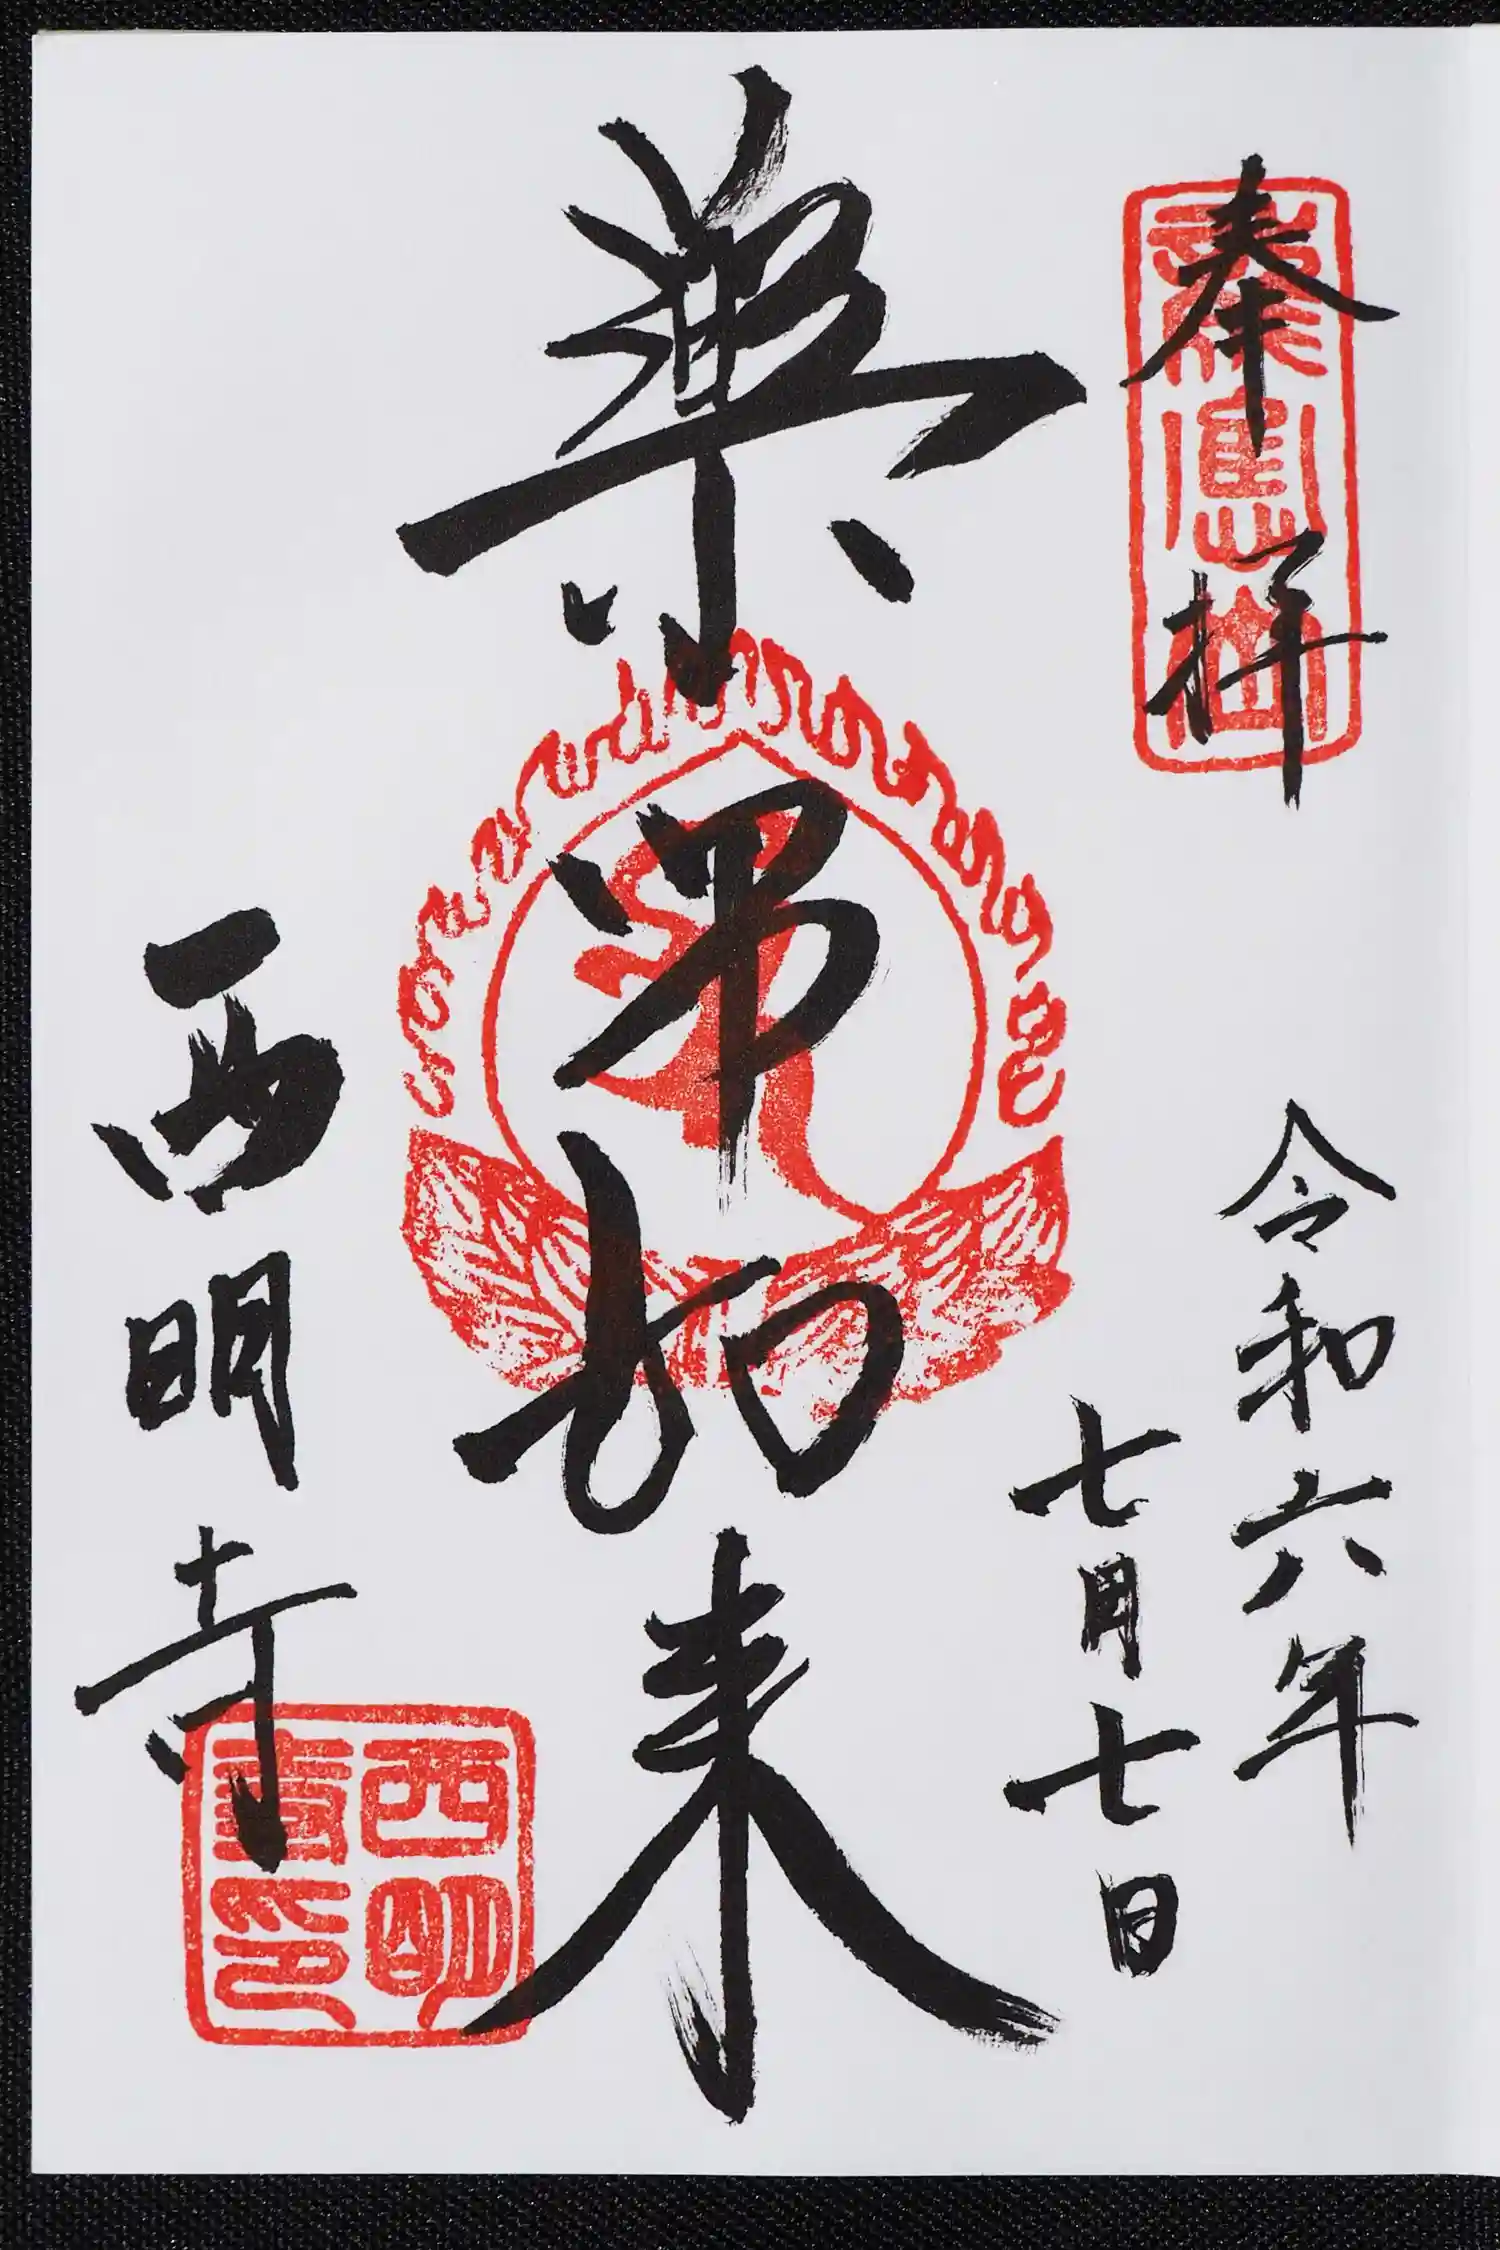 奉拝
令和六年
七月七日
薬師如来
西明寺
西明
寺印